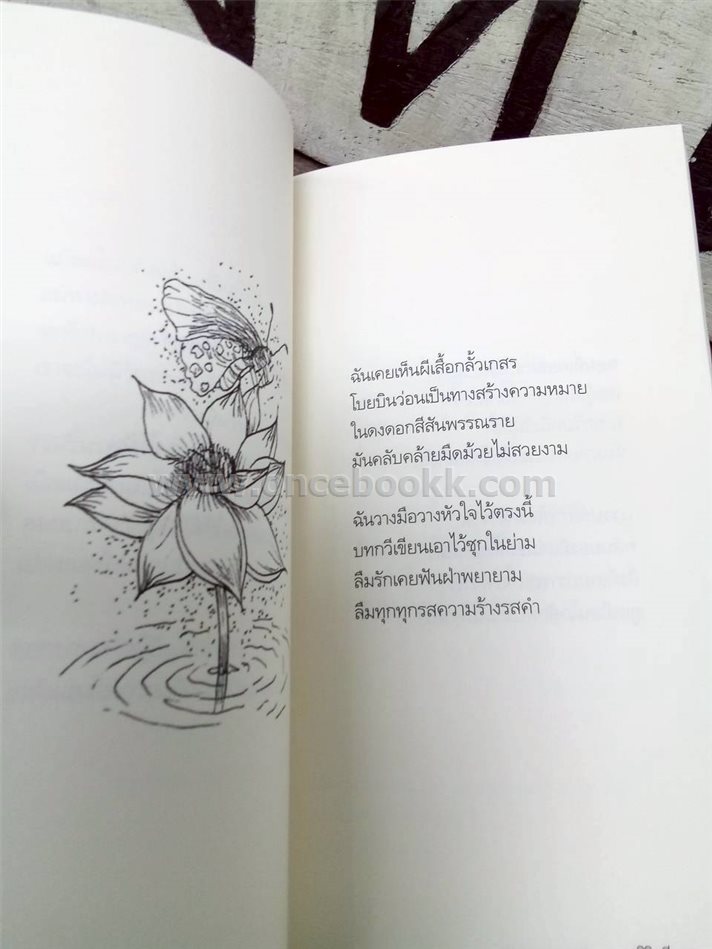 ฉันเคยเห็นผีเสื้อกลั้วเกสร
โบยบินว่อนเป็นทางสร้างความหมาย
ในดงดอกสีสันพรรณราย
มันคลับคล้ายมืดม้วยไม่สวยงาม
www.oncebookk.com
ฉันวางมือวางหัวใจไว้ตรงนี้
บทกวีเขียนเอาไว้ซุกในย่าม
ลืมรักเคยฟันฝ่าพยายาม
ลืมทุกทุกรสความร้างรสคำ